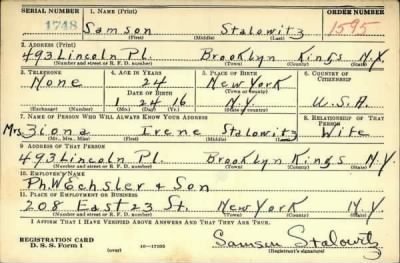 SERIAL NUMBER 1. NAME (Print) ORDER NUMBER
1748 Samson Stalowitz 1595
(First) (Middle) (Last)
2. ADDRESS (Print)
493 Lincoln Pl. Brooklyn Kings N.Y.
(Number and street or R. F. D. number) (Town) (County) (State)
3. TELEPHONE 4. AGE IN YEARS 5. PLACE OF BIRTH 6. COUNTRY OF CITIZENSHIP
None 24 New York
DATE OF BIRTH (Town or county)
1 24 16 N.Y. U.S.A.
(Exchange) (Number) (Mo.) (Day) (Yr.) (State or country)
7. NAME OF PERSON WHO WILL ALWAYS KNOW YOUR ADDRESS 8. RELATIONSHIP OF THAT PERSON
Mrs. Ziona Irene Stalowitz Wife
(Mr., Mrs., Miss) (First) (Middle) (Last)
9. ADDRESS OF THAT PERSON
493 Lincoln Pl. Brooklyn Kings N.Y.
(Number and street or R. F. D. number) (Town) (County) (State)
10. EMPLOYER'S NAME
Ph. Wechsler & Son
11. PLACE OF EMPLOYMENT OR BUSINESS
208 East 23 St. New York N.Y.
(Number and street or R. F. D. number) (Town) (County) (State)
I AFFIRM THAT I HAVE VERIFIED ABOVE ANSWERS AND THAT THEY ARE TRUE.
REGISTRATION CARD Samson Stalowitz
D. S. S. Form 1 (over) 16—17105 (Registrant's signature)